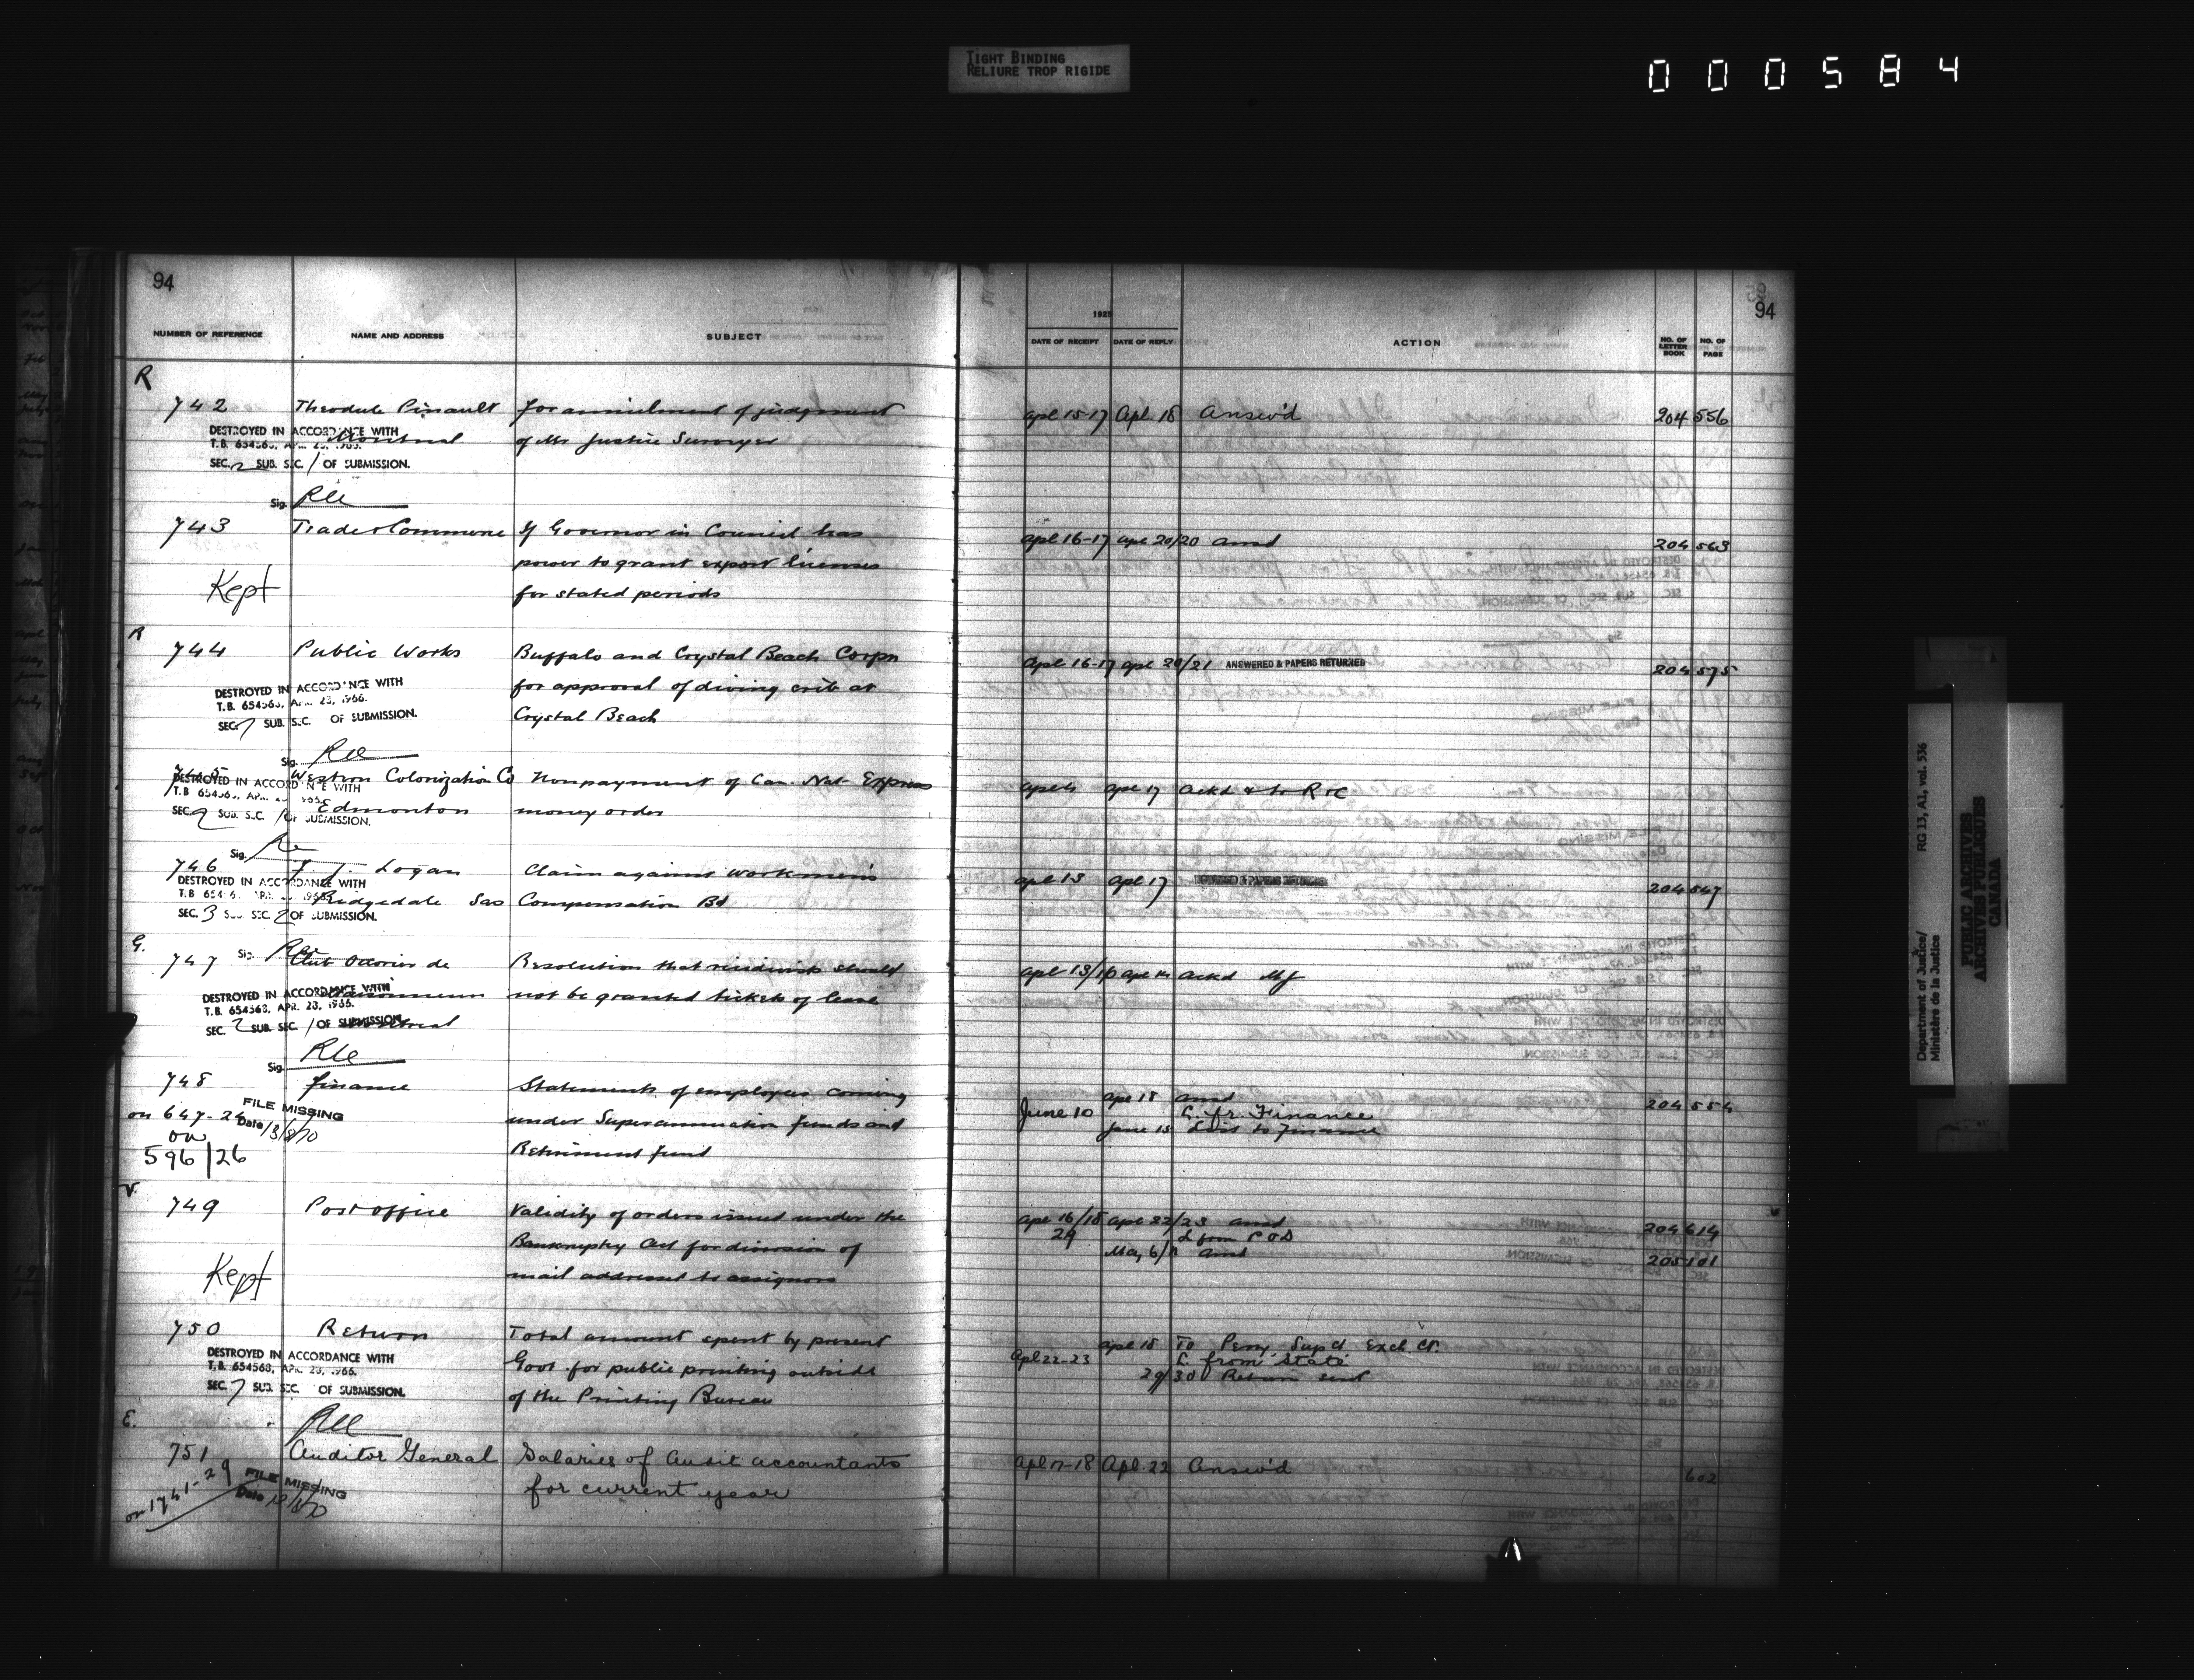 TIGHT BINDING
RELIURE TROP RIGIDE
000584
94
NUMBER OF REFERENCE NAME AND ADDRESS SUBJECT
1925
DATE OF RECEIPT DATE OF REPLY ACTION NO. OF LETTER BOOK NO. OF PAGE
94
R
742 Theodule Pinault for annulment of judgment apl 15-17 Apl 18 Answ'd 204 556
Montreal of Mr Justice Surveyer
DESTROYED IN ACCORDANCE WITH
T.B. 654563, APR. 23, 1966.
SEC. 2 SUB. SEC. 1 OF SUBMISSION.
Sig.
743 Trade & Commerce If Governor in Council has apl 16-17 apl 20/20 ansd 204 563
power to grant export licenses
Kept for stated periods
R
744 Public Works Buffalo and Crystal Beach Corpn apl 16-17 apl 20/21 ANSWERED & PAPERS RETURNED 204 575
for approval of diving crib at
Crystal Beach
DESTROYED IN ACCORDANCE WITH
T.B. 654563, APR. 23, 1966.
SEC. 7 SUB. SEC. OF SUBMISSION.
Sig.
745 Western Colonization Co Nonpayment of Can. Nat. Express apl 17 ackd
Edmonton money order
DESTROYED IN ACCORDANCE WITH
T.B. 654563, APR. 1966.
SEC. 2 SUB. SEC. 1 OF SUBMISSION.
Sig.
746 J. Logan Claim against Workmen's apl 13 apl 17 204 547
Ridgedale Sas Compensation Bd
DESTROYED IN ACCORDANCE WITH
SEC. 3 SUB SEC. 2 OF SUBMISSION.
Sig.
G.
747 Club Ouvrier de Resolution that recidivists should apl 13/16 ackd
Maisonneuve not be granted tickets of leave
Montreal
DESTROYED IN ACCORDANCE WITH
T.B. 654563, APR. 23, 1966.
SEC. 2 SUB. SEC. 1 OF SUBMISSION.
Sig.
748 finance Statements of employees coming apl 18 ansd 204 554
on 647-24 under Superannuation funds and June 10 L. fr. Finance
on Retirement fund June 15 List to Finance
596/26
FILE MISSING
Date 13/8/70
V.
749 Post office Validity of orders issued under the apl 16/18 apl 22/23 ansd 204 614
Bankruptcy Act for diversion of 29 L from P O D
Kept mail addressed to assignors May 6/ ansd 205 101
750 Return Total amount spent by present apl 18 To Peny, Supt. Exch. Ct.
Govt. for public printing outside Apl 22-23 L. from State
of the Printing Bureau 29/30 Return sent
DESTROYED IN ACCORDANCE WITH
T.B. 654563, APR. 23, 1966.
SEC. 7 SUB. SEC. OF SUBMISSION.
E.
751 Auditor General Salaries of Audit accountants Apl 17-18 Apl. 22 Answ'd 602
on 1741-29 for current year
FILE MISSING
Date
Department of Justice/
Ministère de la Justice
RG 13, A1, vol. 536
PUBLIC ARCHIVES
ARCHIVES PUBLIQUES
CANADA